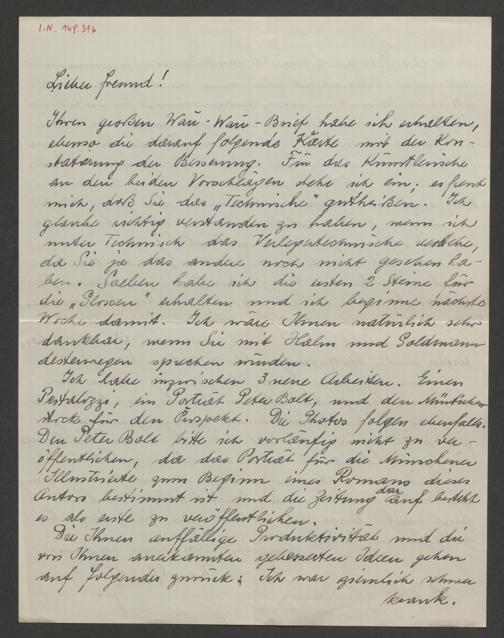 I.N. 149.316
Lieber Freund!
Ihren großen Wau-Wau-Brief habe ich erhalten,
ebenso die darauf folgende Karte mit der Kon-
statierung der Besserung. Für das Künstlerische
an den beiden Vorschlägen stehe ich ein; es freut
mich, daß Sie das „Technische“ gutheißen. Ich
glaube richtig verstanden zu haben, wenn ich
unter Technisch das Verlegertechnische verstehe,
da Sie ja das andere noch nicht gesehen ha-
ben. Soeben habe ich die ersten 2 Steine für
die „Glossen“ erhalten und ich beginne nächste
Woche damit. Ich wäre Ihnen natürlich sehr
dankbar, wenn Sie mit Halm und Goldmann
desterwegen sprechen würden.
Ich habe inzwischen 3 neue Arbeiten. Einen
Pestalozzi, ein Porträt Peter Bolt, und den
für den Prospekt. Die Photos folgen ebenfalls.
Den Peter Bolt bitte ich vorläufig nicht zu ver-
öffentlichen, da das Porträt für die Münchener
Illustrierte zum Beginn eines Romans dieses
Autors bestimmt ist und die Zeitung darauf besteht
es als erste zu veröffentlichen.
Die Ihnen auffällige Produktivität und die
von Ihnen anerkannten gebesserten Ideen gehen
auf folgendes zurück: Ich war ziemlich schwer
krank.